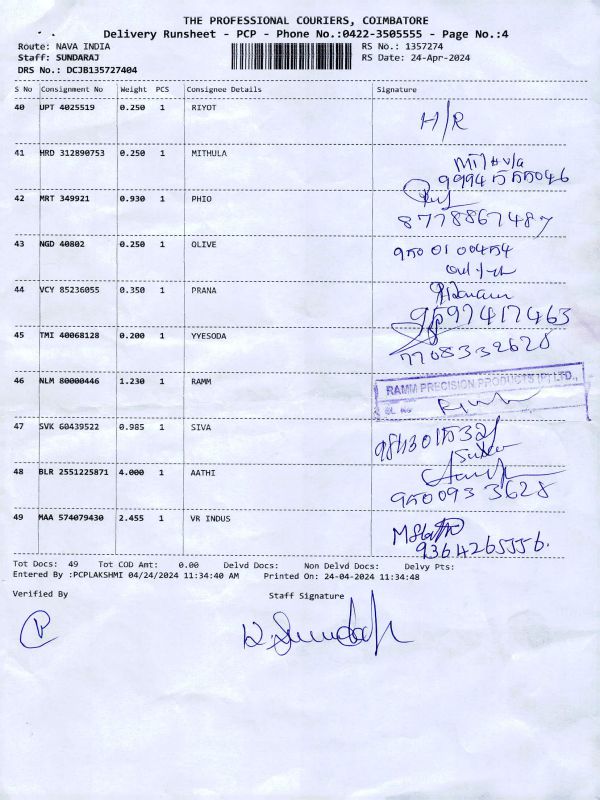 THE PROFESSIONAL COURIERS, COIMBATORE
Delivery Runsheet - PCP - Phone No.:0422-3505555 - Page No.:4
Route: NAVA INDIA RS No.: 1357274
Staff: SUNDARAJ RS Date: 24-Apr-2024
DRS No.: DCJB135727404
S No Consignment No Weight PCS Consignee Details Signature
40 UPT 4025519 0.250 1 RIYOT
H/R
41 HRD 312890753 0.250 1 MITHULA
42 MRT 349921 0.930 1 PHIO
8778867487
43 NGD 40802 0.250 1 OLIVE
44 VCY 85236055 0.350 1 PRANA
9597417463
45 TMI 40068128 0.200 1 YYESODA
7708332628
46 NLM 80000446 1.230 1 RAMM
RAMM PRECISION PRODUCTS (P) LTD.,
47 SVK 60439522 0.985 1 SIVA
48 BLR 2551225871 4.000 1 AATHI
9500933628
49 MAA 574079430 2.455 1 VR INDUS
9364265556.
Tot Docs: 49 Tot COD Amt: 0.00 Delvd Docs: Non Delvd Docs: Delvy Pts:
Entered By :PCPLAKSHMI 04/24/2024 11:34:40 AM Printed On: 24-04-2024 11:34:48
Verified By Staff Signature